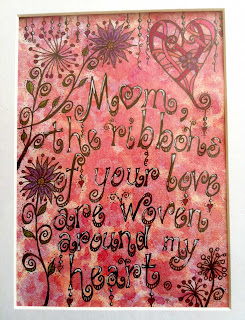 Mom
the ribbons
of your love
are woven
around my
heart